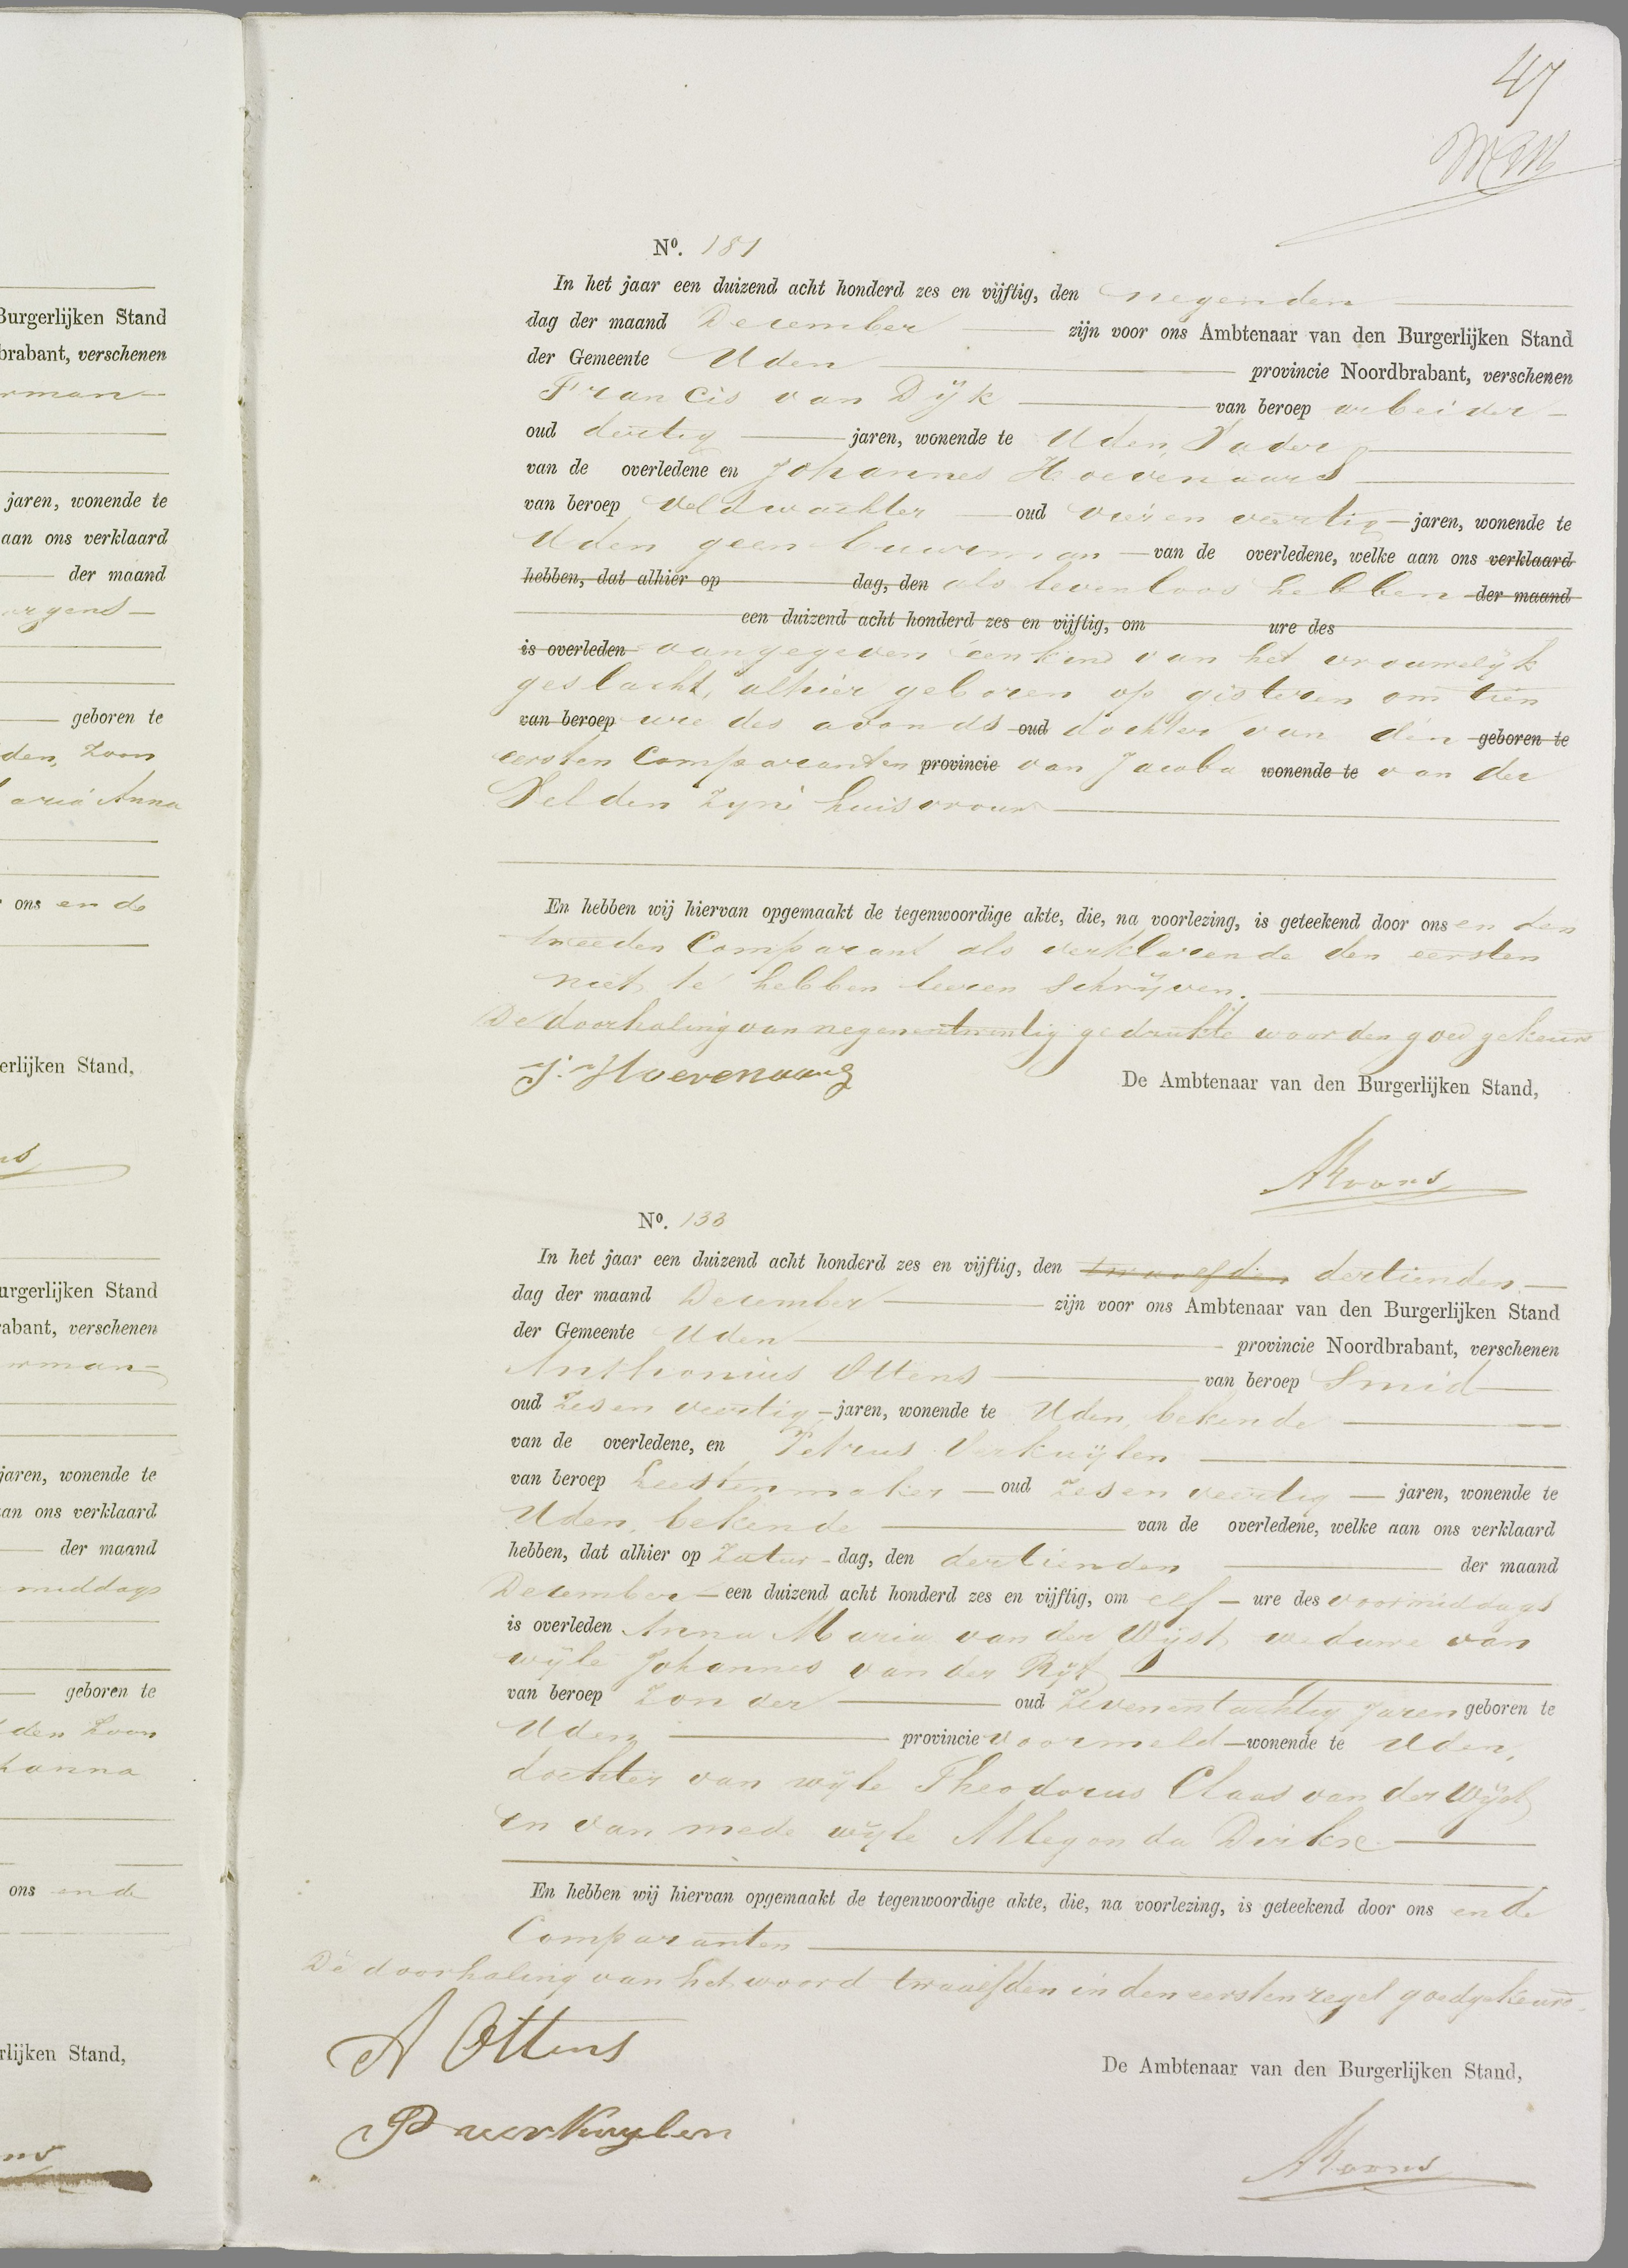 Burgerlijken Stand
brabant, verschenen
rman
jaren, wonende te
aan ons verklaard
der maand
orgens
geboren te
den, Zoon
aria Anna
ons en de
erlijken Stand,
ns
urgerlijken Stand
rabant, verschenen
rman
jaren, wonende te
an ons verklaard
der maand
middags
geboren te
den Zoon
hanna
ons en de
rlijken Stand,
ns
47
No. 131
In het jaar een duizend acht honderd zes en vijftig, den negenden
dag der maand December zijn voor ons Ambtenaar van den Burgerlijken Stand
der Gemeente Uden provincie Noordbrabant, verschenen
Francis van Dijk van beroep arbeider
oud dertig jaren, wonende te Uden, Vader
van de overledene en Johannes Hoevenaars
van beroep Veldwachter oud vier en veertig jaren, wonende te
Uden geen buurman van de overledene, welke aan ons verklaard
hebben, dat alhier op dag, den als levenloos hebben der maand
een duizend acht honderd zes en vijftig, om ure des
is overleden aangegeven een kind van het vrouwelijk
geslacht, alhier geboren op gisteren om tien
van beroep ure des avonds oud dochter van den geboren te
eersten Comparanten provincie van Jacoba wonende te van der
Velden zyne huisvrouw
En hebben wij hiervan opgemaakt de tegenwoordige akte, die, na voorlezing, is geteekend door ons en den
tweeden Comparant als verklarende den eersten
niet te hebben leeren schrijven.
De doorhaling van negenentwintig gedrukte woorden goedgekeurd
J. Hoevenaars
De Ambtenaar van den Burgerlijken Stand,
No. 133
In het jaar een duizend acht honderd zes en vijftig, den twaalfden dertienden
dag der maand December zijn voor ons Ambtenaar van den Burgerlijken Stand
der Gemeente Uden provincie Noordbrabant, verschenen
Anthonius Ottens van beroep Smid
oud Zes en veertig jaren, wonende te Uden, bekende
van de overledene, en Petrus Verkuijlen
van beroep Leestenmaker oud Zes en veertig jaren, wonende te
Uden, bekende van de overledene, welke aan ons verklaard
hebben, dat alhier op Zatur dag, den dertienden der maand
December een duizend acht honderd zes en vijftig, om elf ure des voormiddags
is overleden Anna Maria van der Wijst, weduwe van
wijle Johannes van der Rijt
van beroep Zonder oud Zevenentachtig Jaren geboren te
Uden provincie voormeld wonende te Uden,
dochter van wijle Theodorus Claas van der Wijst
en van mede wijle Allegonda Dirkse
En hebben wij hiervan opgemaakt de tegenwoordige akte, die, na voorlezing, is geteekend door ons en de
Comparanten
De doorhaling van het woord twaalfden in den eersten regel goedgekeurd.
A Ottens
P verkuylen
De Ambtenaar van den Burgerlijken Stand,